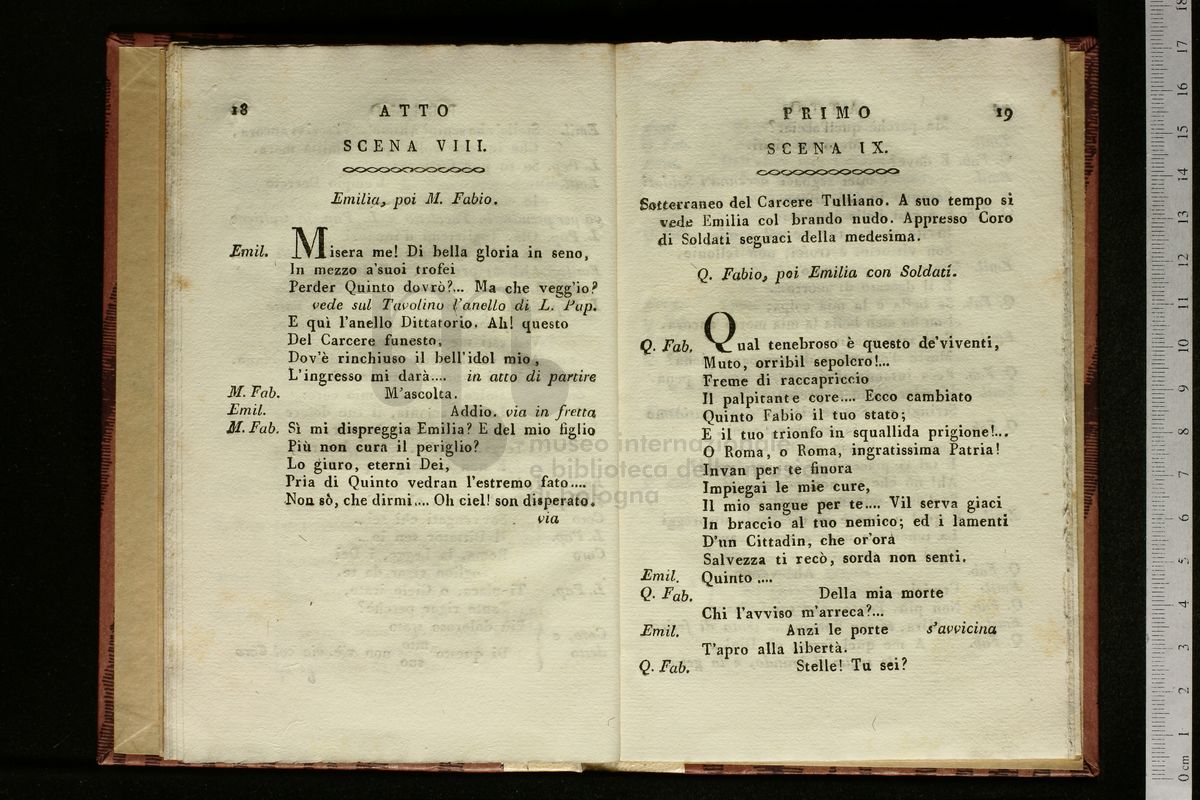 18
ATTO
SCENA VIII.
Emilia, poi M. Fabio.
Emil. Misera me! Di bella gloria in seno,
In mezzo a'suoi trofei
Perder Quinto dovrò?... Ma che vegg'io?
vede sul Tavolino l'anello di L. Pap.
E quì l'anello Dittatorio. Ah! questo
Del Carcere funesto,
Dov'è rinchiuso il bell'idol mio,
L'ingresso mi darà.... in atto di partire
M. Fab. M'ascolta.
Emil. Addio. via in fretta
M. Fab. Sì mi dispreggia Emilia? E del mio figlio
Più non cura il periglio?
Lo giuro, eterni Dei,
Pria di Quinto vedran l'estremo fato....
Non sò, che dirmi.... Oh ciel! son disperato.
via
PRIMO
19
SCENA IX.
Sotterraneo del Carcere Tulliano. A suo tempo si
vede Emilia col brando nudo. Appresso Coro
di Soldati seguaci della medesima.
Q. Fabio, poi Emilia con Soldati.
Q. Fab. Qual tenebroso è questo de'viventi,
Muto, orribil sepolcro!...
Freme di raccapriccio
Il palpitante core.... Ecco cambiato
Quinto Fabio il tuo stato;
E il tuo trionfo in squallida prigione!...
O Roma, o Roma, ingratissima Patria!
Invan per te finora
Impiegai le mie cure,
Il mio sangue per te.... Vil serva giaci
In braccio al tuo nemico; ed i lamenti
D'un Cittadin, che or'ora
Salvezza ti recò, sorda non senti.
Emil. Quinto ....
Q. Fab. Della mia morte
Chi l'avviso m'arreca?...
Emil. Anzi le porte s'avvicina
T'apro alla libertà.
Q. Fab. Stelle! Tu sei?
museo internazionale
e biblioteca della musica
di bologna
0 cm 1 2 3 4 5 6 7 8 9 10 11 12 13 14 15 16 17 18